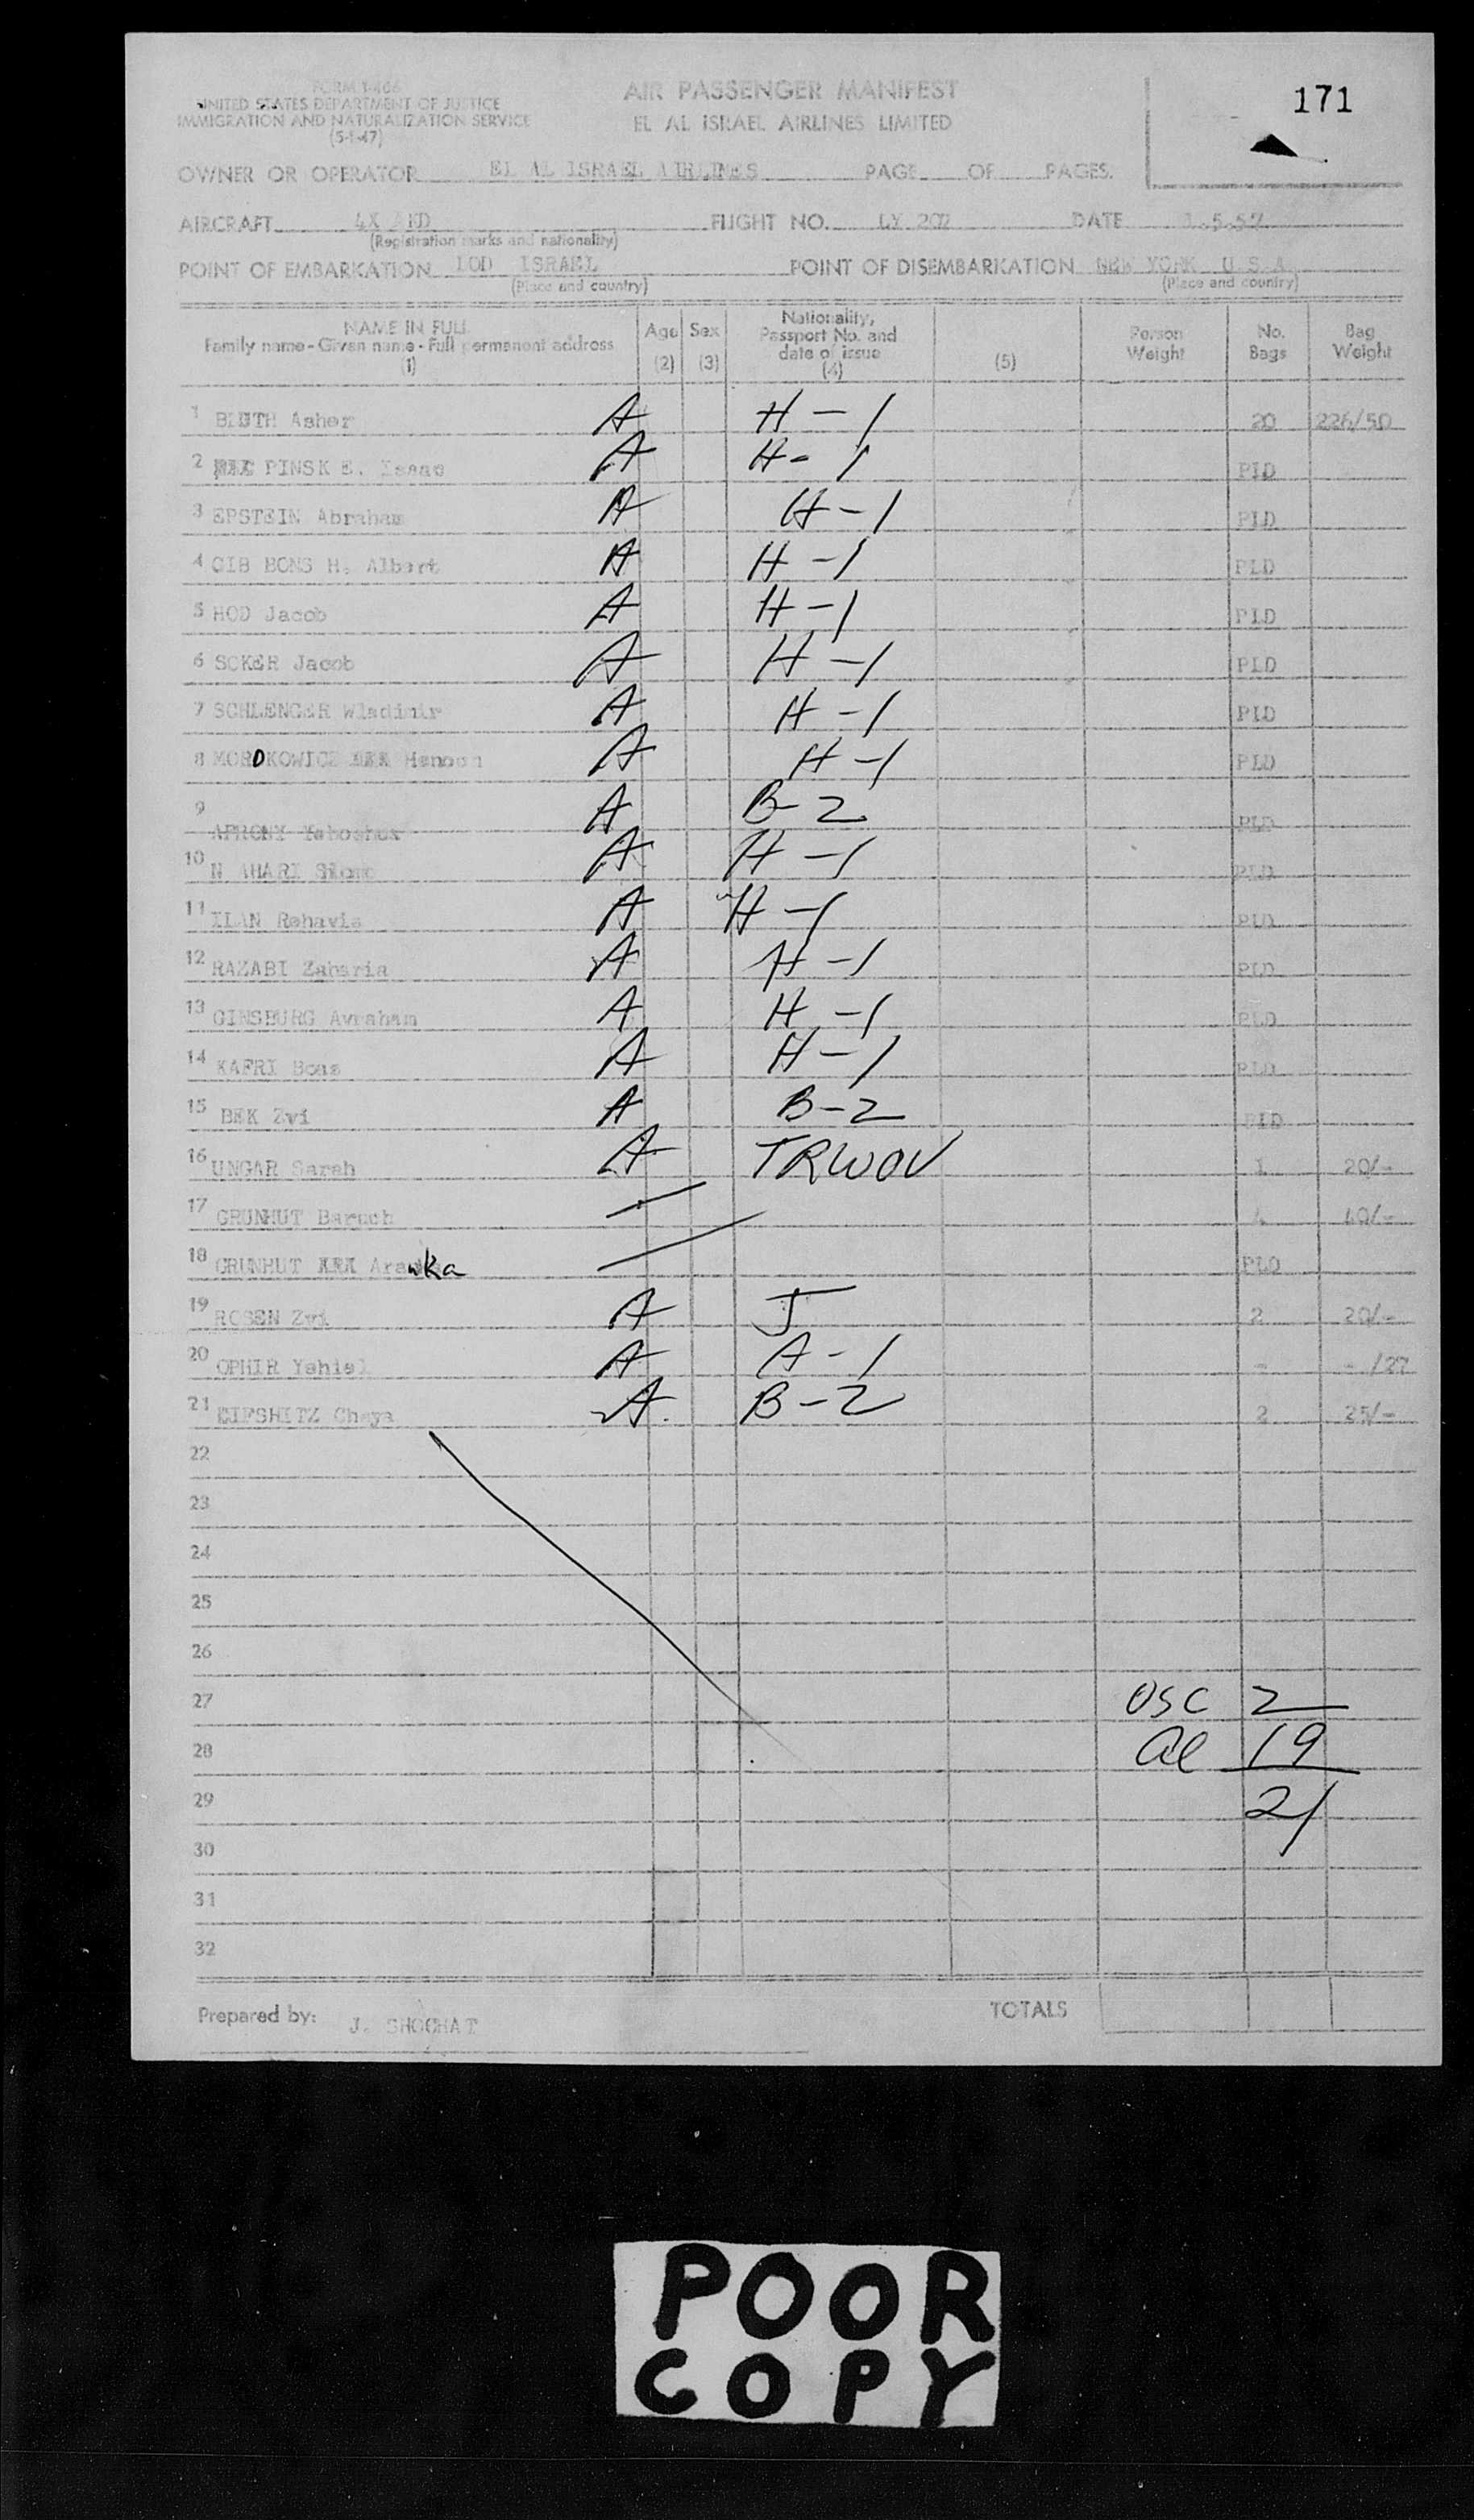 171
FORM I-466
UNITED STATES DEPARTMENT OF JUSTICE
IMMIGRATION AND NATURALIZATION SERVICE
(5-1-47)
AIR PASSENGER MANIFEST
EL AL ISRAEL AIRLINES LIMITED
OWNER OR OPERATOR EL AL ISRAEL AIRLINES PAGE OF PAGES.
AIRCRAFT 4X FLIGHT NO. LY 202 DATE 1.5.57
(Registration marks and nationality)
POINT OF EMBARKATION LOD ISRAEL POINT OF DISEMBARKATION NEW YORK U S A
(Place and country) (Place and country)
NAME IN FULL Family name - Given name - Full permanent address (1) Age (2) Sex (3) Nationality, Passport No. and date of issue (4) (5) Person Weight No. Bags Bag Weight
1 BLUTH Asher A H-1 20 226/50
2 PINSK E. Isaac A H-1 PLD
3 EPSTEIN Abraham A H-1 PLD
4 GIB BONS H. Albert A H-1 PLD
5 HOD Jacob A H-1 PLD
6 SOKER Jacob A H-1 PLD
7 SCHLENGER Wladimir A H-1 PLD
8 MORDKOWICZ Henoch A H-1 PLD
9 A B-2 PLD
10 N AHARI A H-1 PLD
11 ILAN Rehavia A H-1 PLD
12 RAZABI Zaharia A H-1 PLD
13 GINSBURG Avraham A H-1 PLD
14 KAFRI Boaz A H-1 PLD
15 BEK Zvi A B-2 PLD
16 UNGAR Sarah A TRWOV 1 20/-
17 GRUNHUT Baruch 4 40/-
18 GRUNHUT PLD
19 ROSEN Zvi A J 2 20/-
20 OPHIR Yehiel A A-1 - - /27
21 LIFSHITZ Chaya A B-2 2 25/-
22
23
24
25
26
27 OSC 2
28 al 19
29 21
30
31
32
Prepared by: J. SHOCHAT TOTALS
POOR
COPY